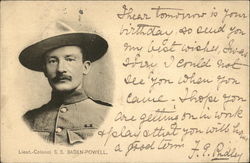 I hear tomorrow is your
birthday so send you
my best wishes. I was
sorry I could not
see you when you
came. I hope you
are getting on in work
& play & that you will have
a good term
Lieut.-Colonel S. S. BADEN-POWELL.